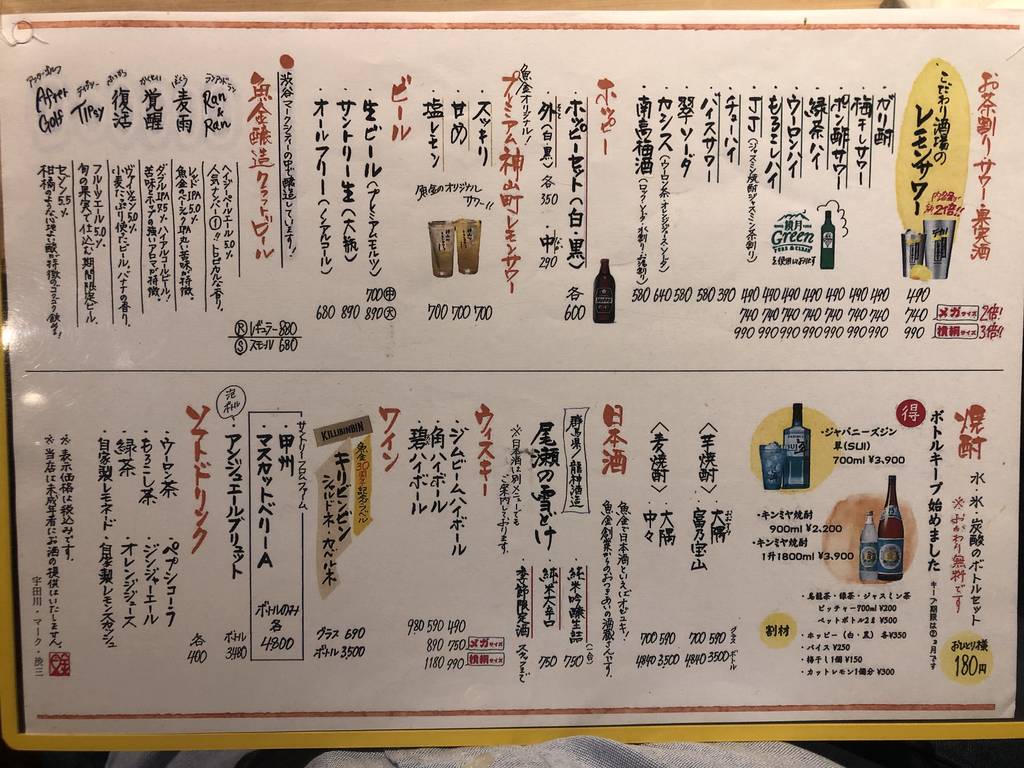 お茶割り サワー 果実酒
こだわり酒場の
レモンサワー
490
740
990
メガサイズ 2倍!
横綱サイズ 3倍!!
ガリ酎 490 740 990
梅干しサワー 490 740 990
ポン酢サワー 490 740 990
緑茶ハイ 490 740 990
ウーロンハイ 490 740 990
もろこしハイ 490 740 990
JJ(ジャスミン焼酎ジャスミン茶割り) 490 740 990
チューハイ 390
バイスサワー 580
翠ソーダ 580
カシス(ウーロン茶・オレンジジュース・ソーダ) 640
南高梅酒(ロック・ソーダ・水割り・お湯割り) 580
翠月
Green
を使用しております
ホッピー
ホッピーセット(白・黒) 各600
外(白・黒)各350 中290
魚金オリジナル!
プレミアム神山町レモンサワー
スッキリ 700
甘め 700
塩レモン 700
魚金のオリジナルサワー!!
ビール
生ビール(プレミアムモルツ) 中700 大890
サントリー生(大瓶) 890
オールフリー(ノンアルコール) 680
渋谷マークシティーの中で醸造しています!
魚金醸造クラフトビール
Ran & Ran
ヘイジーペールエール 5.0%
人気ナンバー①!!トロピカルな香り。
麦雨
レッドIPA 5.0%
魚金のベーシックIPA 丸い苦味が特徴。
覚醒
ダブルIPA 8.5% ハイアルコールビール!
苦味とホップの強いアロマが特徴。
復活
ヴァイツェン 5.0%
小麦たっぷり使ったビール。バナナの香り。
Tipsy
フルーツエール 5.0%
旬の果実で仕込む期間限定ビール。
After Golf
セゾン 5.5%
柑橘のような心地よい酸が特徴のゴクゴク飲める!
Ⓡレギュラー 880
Ⓢスモール 680
焼酎
水・氷・炭酸のボトルセット
※おかわり無料です
おひとり様
180円
得
ボトルキープ始めました
キープ期限は②ヵ月です
・ジャパニーズジン
翠(SUI)
700ml ¥3,900
・キンミヤ焼酎
900ml ¥2,200
・キンミヤ焼酎
1升1800ml ¥3,900
割材
・烏龍茶・緑茶・ジャスミン茶
ピッチャー700ml ¥200
ペットボトル2ℓ ¥500
・ホッピー(白・黒)各¥350
・バイス ¥250
・梅干し1個 ¥150
・カットレモン1個分 ¥300
グラス ボトル
〈芋焼酎〉
大隅 590 3500
富乃宝山 700 4840
〈麦焼酎〉
大隅 590 3500
中々 700 4840
日本酒
魚金で日本酒といえばオゼユキ!
魚金創業からのおつきあいの酒蔵さんです。
群馬県/龍神酒造
尾瀬の雪どけ
純米吟醸生詰(一合) 750
純米大辛口 750
季節限定酒 スタッフまで
※日本酒は別メニューでもご案内しております。
ウィスキー
ジムビームハイボール 490 750 990
角ハイボール 590 890 1180
碧ハイボール 980
メガサイズ
横綱サイズ
ワイン
KILLIBINBIN
魚金30周年記念ラベル
キリビンビン
シャルドネ カベルネ
グラス 690
ボトル 3,500
サントリーフロムファーム
甲州
マスカットベリーA
ボトルのみ
各
4800
泡
ボトル
アンジュエールブリュット
ボトル
3,480
ソフトドリンク
ウーロン茶
もろこし茶
緑茶
自家製レモネード
ペプシコーラ
ジンジャーエール
オレンジジュース
自家製レモンスカッシュ
各
400
※表示価格は税込みです。
※当店は未成年者にお酒の提供はいたしません。
宇田川・マーク・渋三